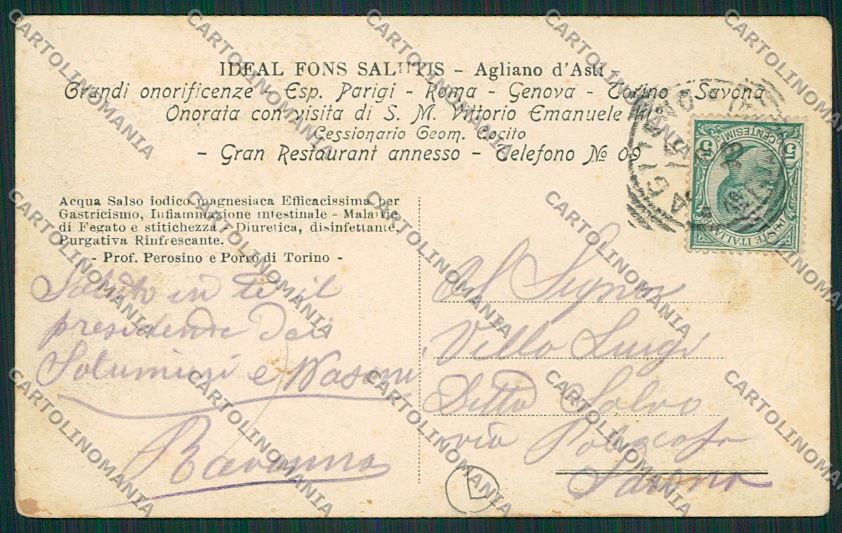 IDEAL FONS SALUTIS - Agliano d'Asti
Grandi onorificenze - Esp. Parigi - Roma - Genova - Torino - Savona
Onorata con visita di S. M. Vittorio Emanuele III
Cessionario Geom. Cocito
- Gran Restaurant annesso - Telefono No 09
Acqua Salso iodico magnesiaca Efficacissima per
Gastricismo, Infiammazione intestinale - Malattie
di Fegato e stitichezza - Diuretica, disinfettante,
Purgativa Rinfrescante.
- Prof. Perosino e Porro di Torino -
Saluto in te il
presidente dei
Salumieri e
Ravanna
Al Signor
Villa Luigi
Ditta Salvo
via
Savona
AGLIANO
POSTE ITALIANE
CENTESIMI 5
5
L
CARTOLINOMANIA